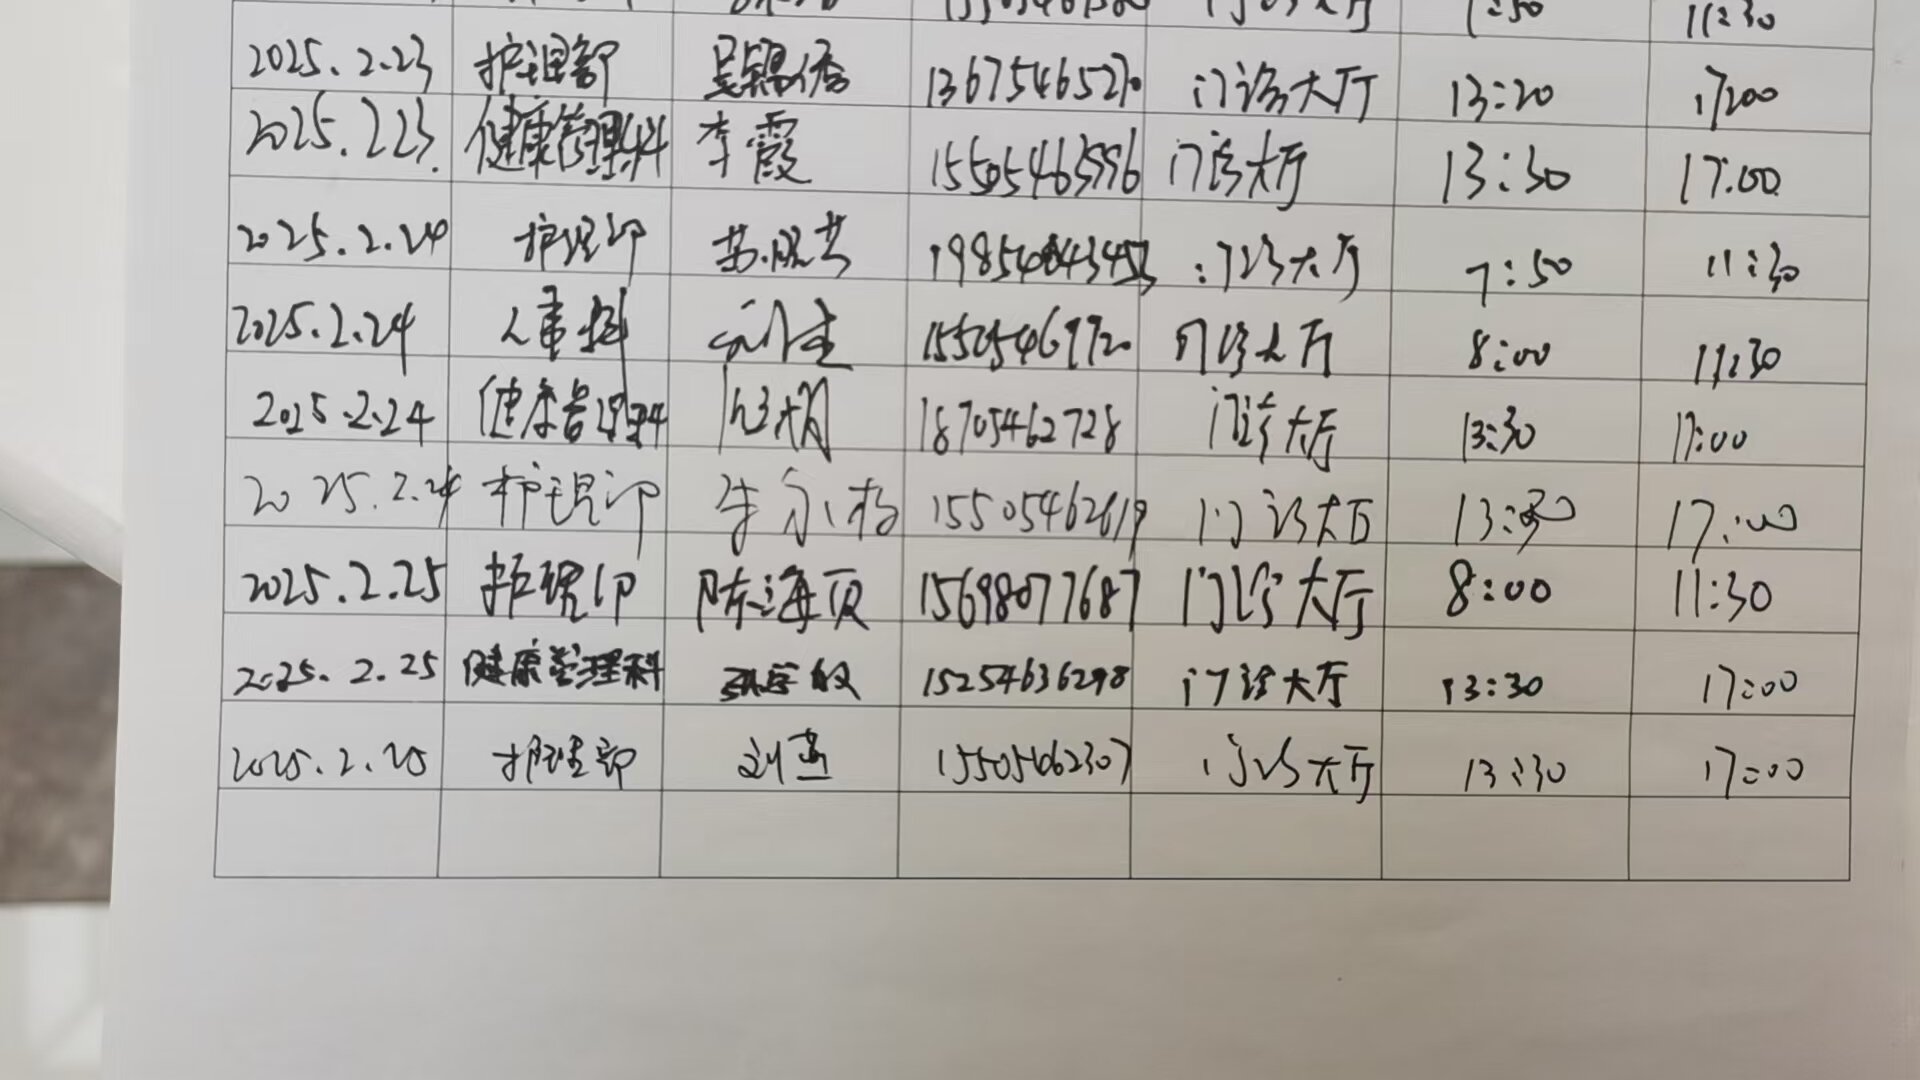 11:30
2025.2.23 护理部 吴锦秀 13675465270 门诊大厅 13:20 17:00
2025.2.23. 健康管理科 李霞 15505463596 门诊大厅 13:30 17:00
2025.2.24 护理部 19854084345 门诊大厅 7:50 11:30
2025.2.24 刘生 门诊大厅 8:00 11:30
2025.2.24 健康管理科 18705462728 门诊大厅 13:30 17:00
2025.2.24 护理部 15505462619 门诊大厅 13:30 17:00
2025.2.25 护理部 陈海霞 15698077687 门诊大厅 8:00 11:30
2025.2.25 健康管理科 15254636298 门诊大厅 13:30 17:00
2025.2.25 护理部 刘燕 15505462307 门诊大厅 13:30 17:00